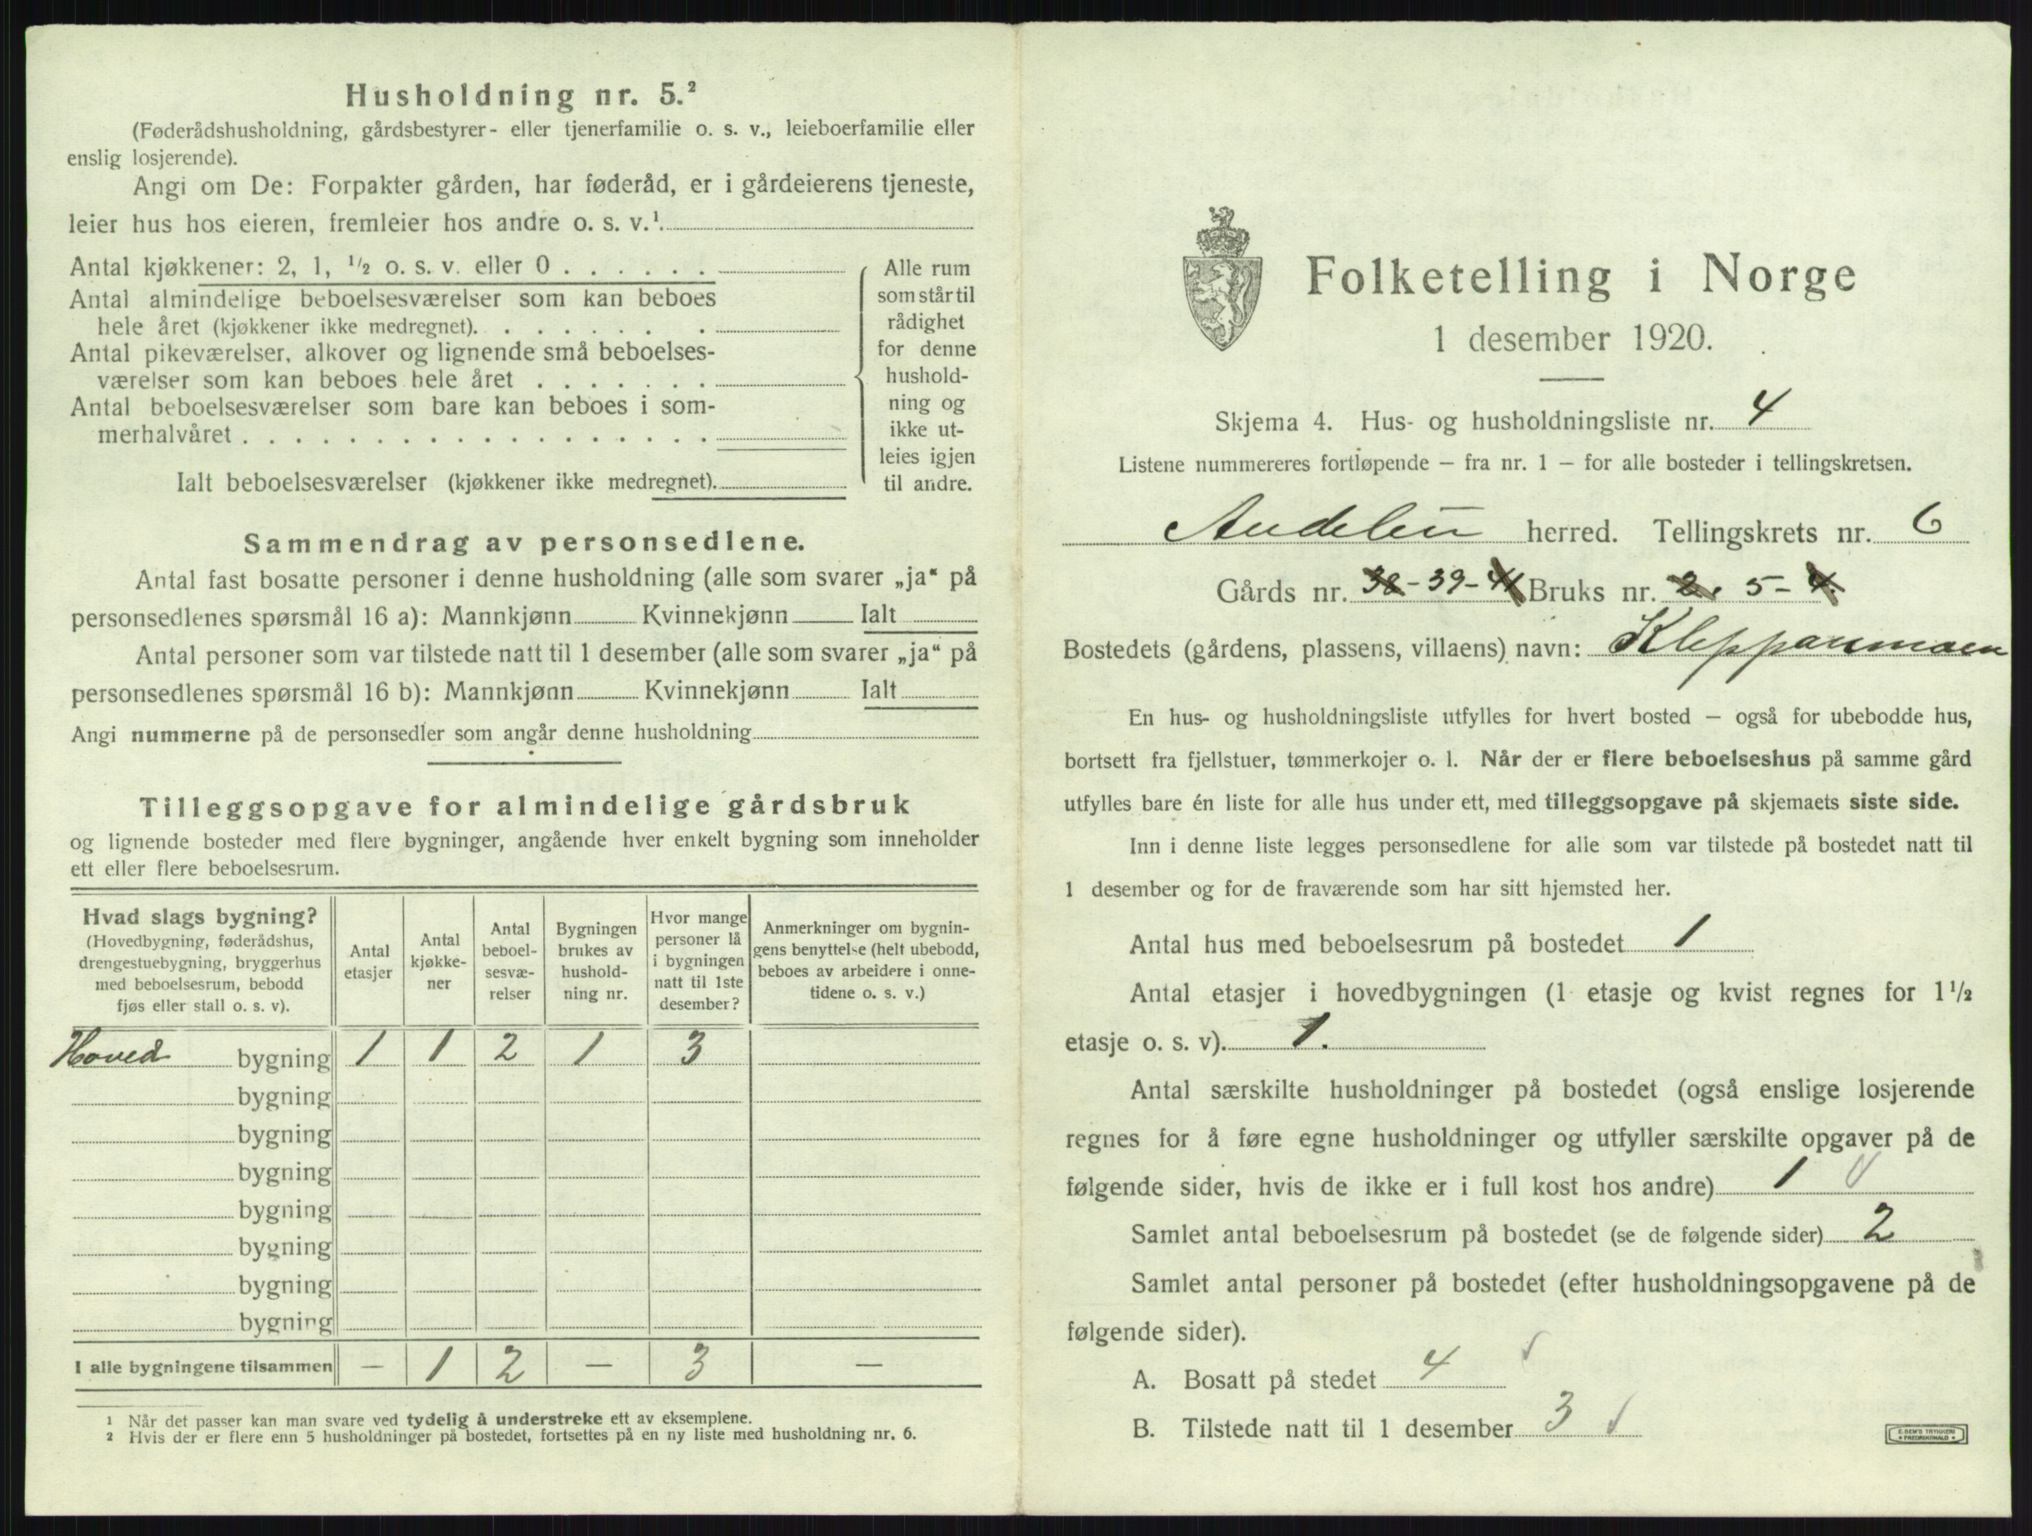 Husholdning nr. 5.²
(Føderådshusholdning, gårdsbestyrer- eller tjenerfamilie o. s. v., leieboerfamilie eller
enslig losjerende).
Angi om De: Forpakter gården, har føderåd, er i gårdeierens tjeneste,
leier hus hos eieren, fremleier hos andre o. s. v.¹.
Antal kjøkkener: 2, 1, ½ o. s. v. eller 0 . . . . . .
Antal almindelige beboelsesværelser som kan beboes
hele året (kjøkkener ikke medregnet). . . . . . . . .
Antal pikeværelser, alkover og lignende små beboelses-
værelser som kan beboes hele året . . . . . . .
Antal beboelsesværelser som bare kan beboes i som-
merhalvåret . . . . . . . . . . . . . . . . . .
Ialt beboelsesværelser (kjøkkener ikke medregnet).
Alle rum
som står til
rådighet
for denne
hushold-
ning og
ikke ut-
leies igjen
til andre.
Sammendrag av personsedlene.
Antal fast bosatte personer i denne husholdning (alle som svarer „ja“ på
personsedlenes spørsmål 16 a): Mannkjønn Kvinnekjønn Ialt
Antal personer som var tilstede natt til 1 desember (alle som svarer „ja“ på
personsedlenes spørsmål 16 b): Mannkjønn Kvinnekjønn Ialt
Angi nummerne på de personsedler som angår denne husholdning
Tilleggsopgave for almindelige gårdsbruk
og lignende bosteder med flere bygninger, angående hver enkelt bygning som inneholder
ett eller flere beboelsesrum.
Hvad slags bygning?
(Hovedbygning, føderådshus,
drengestuebygning, bryggerhus
med beboelsesrum, bebodd
fjøs eller stall o. s. v).
Antal
etasjer
Antal
kjøkke-
ner
Antal
beboel-
sesvæ-
relser
Bygningen
brukes av
hushold-
ning nr.
Hvor mange
personer lå
i bygningen
natt til 1ste
desember?
Anmerkninger om bygnin-
gens benyttelse (helt ubebodd,
beboes av arbeidere i onne-
tidene o. s. v.)
Hoved bygning 1 1 2 1 3
bygning
bygning
bygning
bygning
bygning
bygning
bygning
I alle bygningene tilsammen — 1 2 — 3 —
¹ Når det passer kan man svare ved tydelig å understreke ett av eksemplene.
² Hvis der er flere enn 5 husholdninger på bostedet, fortsettes på en ny liste med husholdning nr. 6.
Folketelling i Norge
1 desember 1920.
Skjema 4. Hus- og husholdningsliste nr. 4
Listene nummereres fortløpende — fra nr. 1 — for alle bosteder i tellingskretsen.
Audelen herred. Tellingskrets nr. 6
Gårds nr. 38-39-41 Bruks nr. 2, 5-4
Bostedets (gårdens, plassens, villaens) navn: Kleppanmoen
En hus- og husholdningsliste utfylles for hvert bosted — også for ubebodde hus,
bortsett fra fjellstuer, tømmerkojer o. l. Når der er flere beboelseshus på samme gård
utfylles bare én liste for alle hus under ett, med tilleggsopgave på skjemaets siste side.
Inn i denne liste legges personsedlene for alle som var tilstede på bostedet natt til
1 desember og for de fraværende som har sitt hjemsted her.
Antal hus med beboelsesrum på bostedet 1
Antal etasjer i hovedbygningen (1 etasje og kvist regnes for 1½
etasje o. s. v). 1.
Antal særskilte husholdninger på bostedet (også enslige losjerende
regnes for å føre egne husholdninger og utfyller særskilte opgaver på de
følgende sider, hvis de ikke er i full kost hos andre) 1
Samlet antal beboelsesrum på bostedet (se de følgende sider) 2
Samlet antal personer på bostedet (efter husholdningsopgavene på de
følgende sider).
A. Bosatt på stedet 4
B. Tilstede natt til 1 desember 3
E. SEM'S TRYKKERI
FREDRIKSHALD